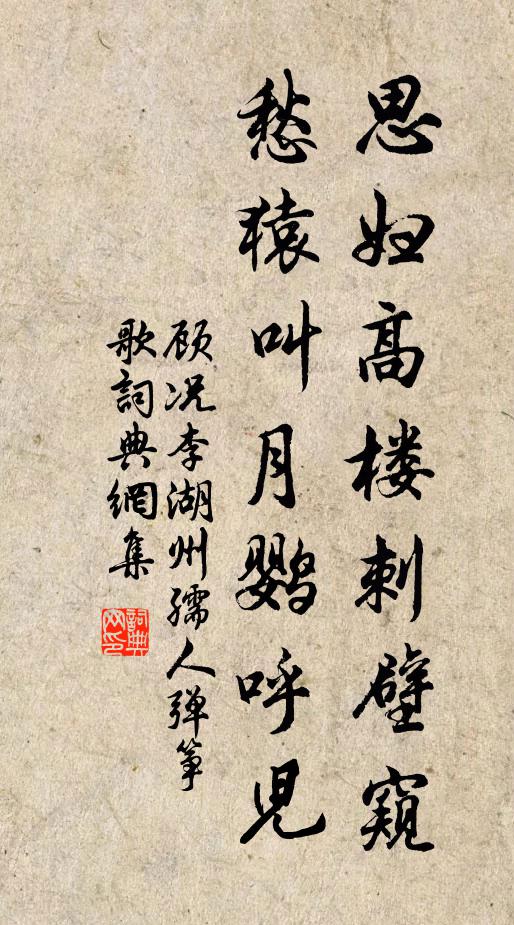 思妇高楼刺壁窥
愁猿叫月鹦呼児
顾况李湖州孺人弹筝
歌詞典網集
詞典网印